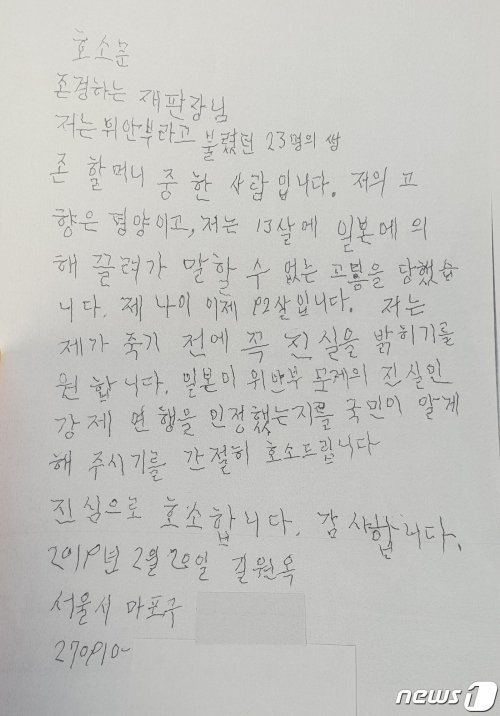 호소문
존경하는 재판장님
저는 위안부라고 불렸던 23명의 생
존 할머니 중 한 사람입니다. 저의 고
향은 평양이고, 저는 13살에 일본에 의
해 끌려가 말할 수 없는 고통을 당했습
니다. 제 나이 이제 92살입니다. 저는
제가 죽기 전에 꼭 진실을 밝히기를
원합니다. 일본이 위안부 문제의 진실인
강제 연행을 인정했는지를 국민이 알게
해 주시기를 간절히 호소드립니다
진심으로 호소합니다. 감사합니다.
2019년 2월 20일 길원옥
서울시 마포구
270910-
news1